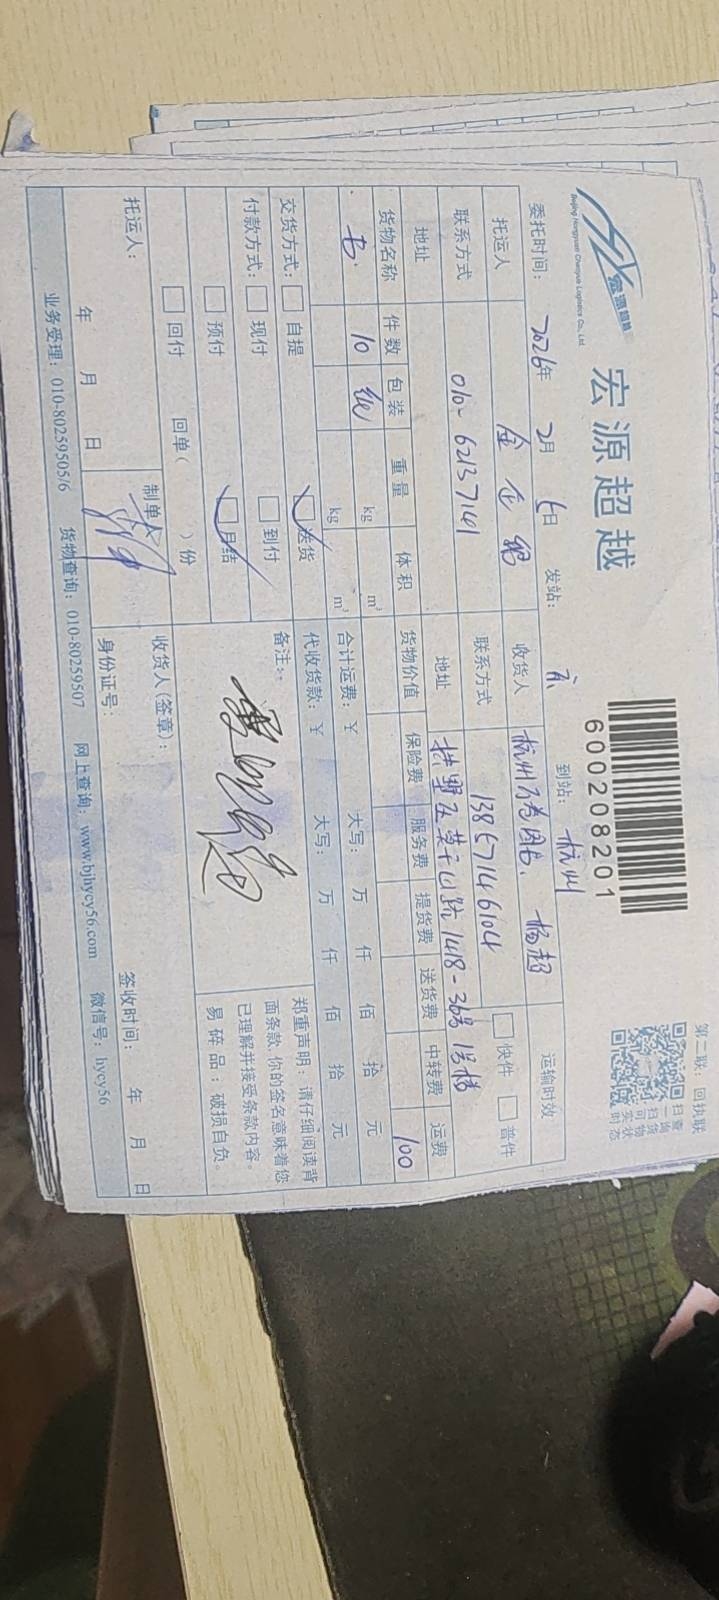 宏源超越
宏源超越
Beijing Hongyuan Chaoyue Logistics Co., Ltd.
600208201
第二联:回执联
扫一扫
查询货物实时状态
委托时间: 2026年 2月 6日 发站: 京 到站: 杭州
托运人 金企鹅 收货人 杭州 杨超 运输时效
联系方式 010-62137141 联系方式 13857146104 快件 普件
地址 地址 拱墅区莫干山路1418-36号1号楼
货物名称 件数 包装 重量 体积 货物价值 保险费 服务费 提货费 送货费 中转费 运费
书 10 纸 kg m³ 100
kg m³ 合计运费:¥ 大写: 万 仟 佰 拾 元
交货方式: 自提 送货 代收货款:¥ 大写: 万 仟 佰 拾 元
付款方式: 现付 到付 备注:
预付 月结
回付 回单( )份
郑重声明:请仔细阅读背
面条款,你的签名意味着您
已理解并接受条款内容。
易碎品:破损自负。
托运人: 制单人 收货人(签章):
年 月 日 身份证号: 签收时间: 年 月 日
业务受理:010-80259505/6 货物查询:010-80259507 网上查询:www.bjhycy56.com 微信号:hycy56